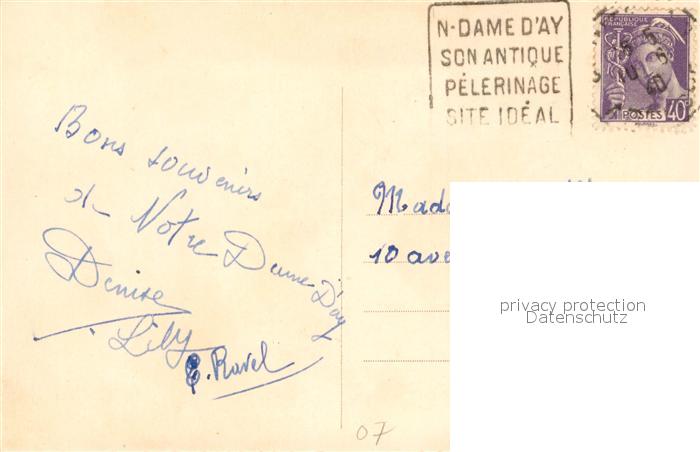 N-DAME D'AY
SON ANTIQUE
PÈLERINAGE
SITE IDÉAL
REPUBLIQUE
FRANÇAISE
POSTES 40F
5
6
40
Bons souvenirs
de Notre Dame D'ay
Denise
Lily
E. Ravel
Mada
10 ave
privacy protection
Datenschutz
07